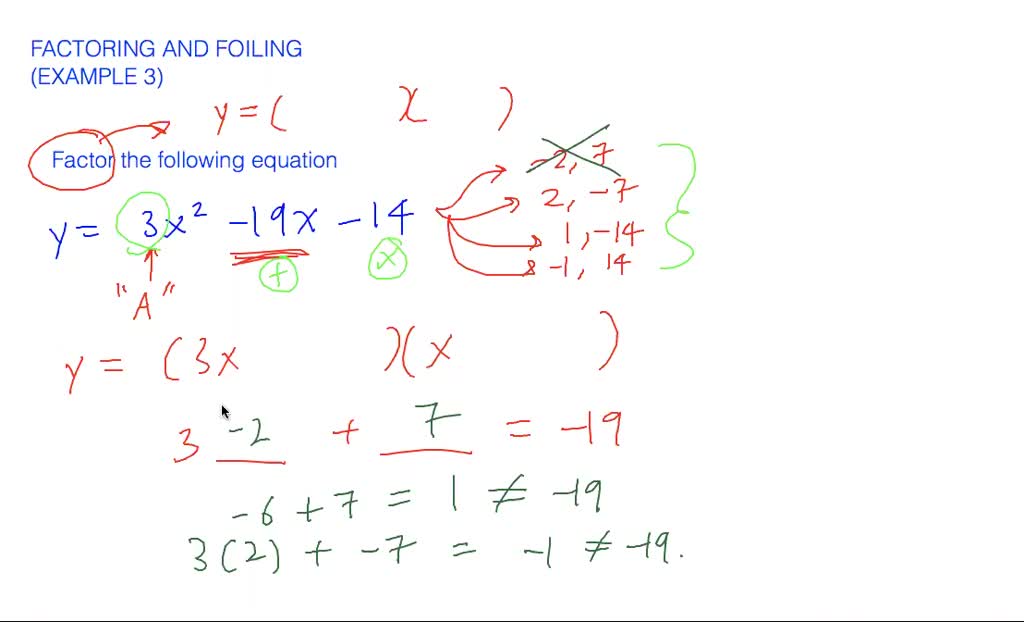 FACTORING AND FOILING
(EXAMPLE 3)
y = ( x )
Factor the following equation
-2, 7
2, -7
y = 3x² -19x -14
1, -14
+ x
-1, 14
"A"
y = (3x )(x )
3 -2 + 7 = -19
-6 + 7 = 1 ≠ -19
3(2) + -7 = -1 ≠ -19.